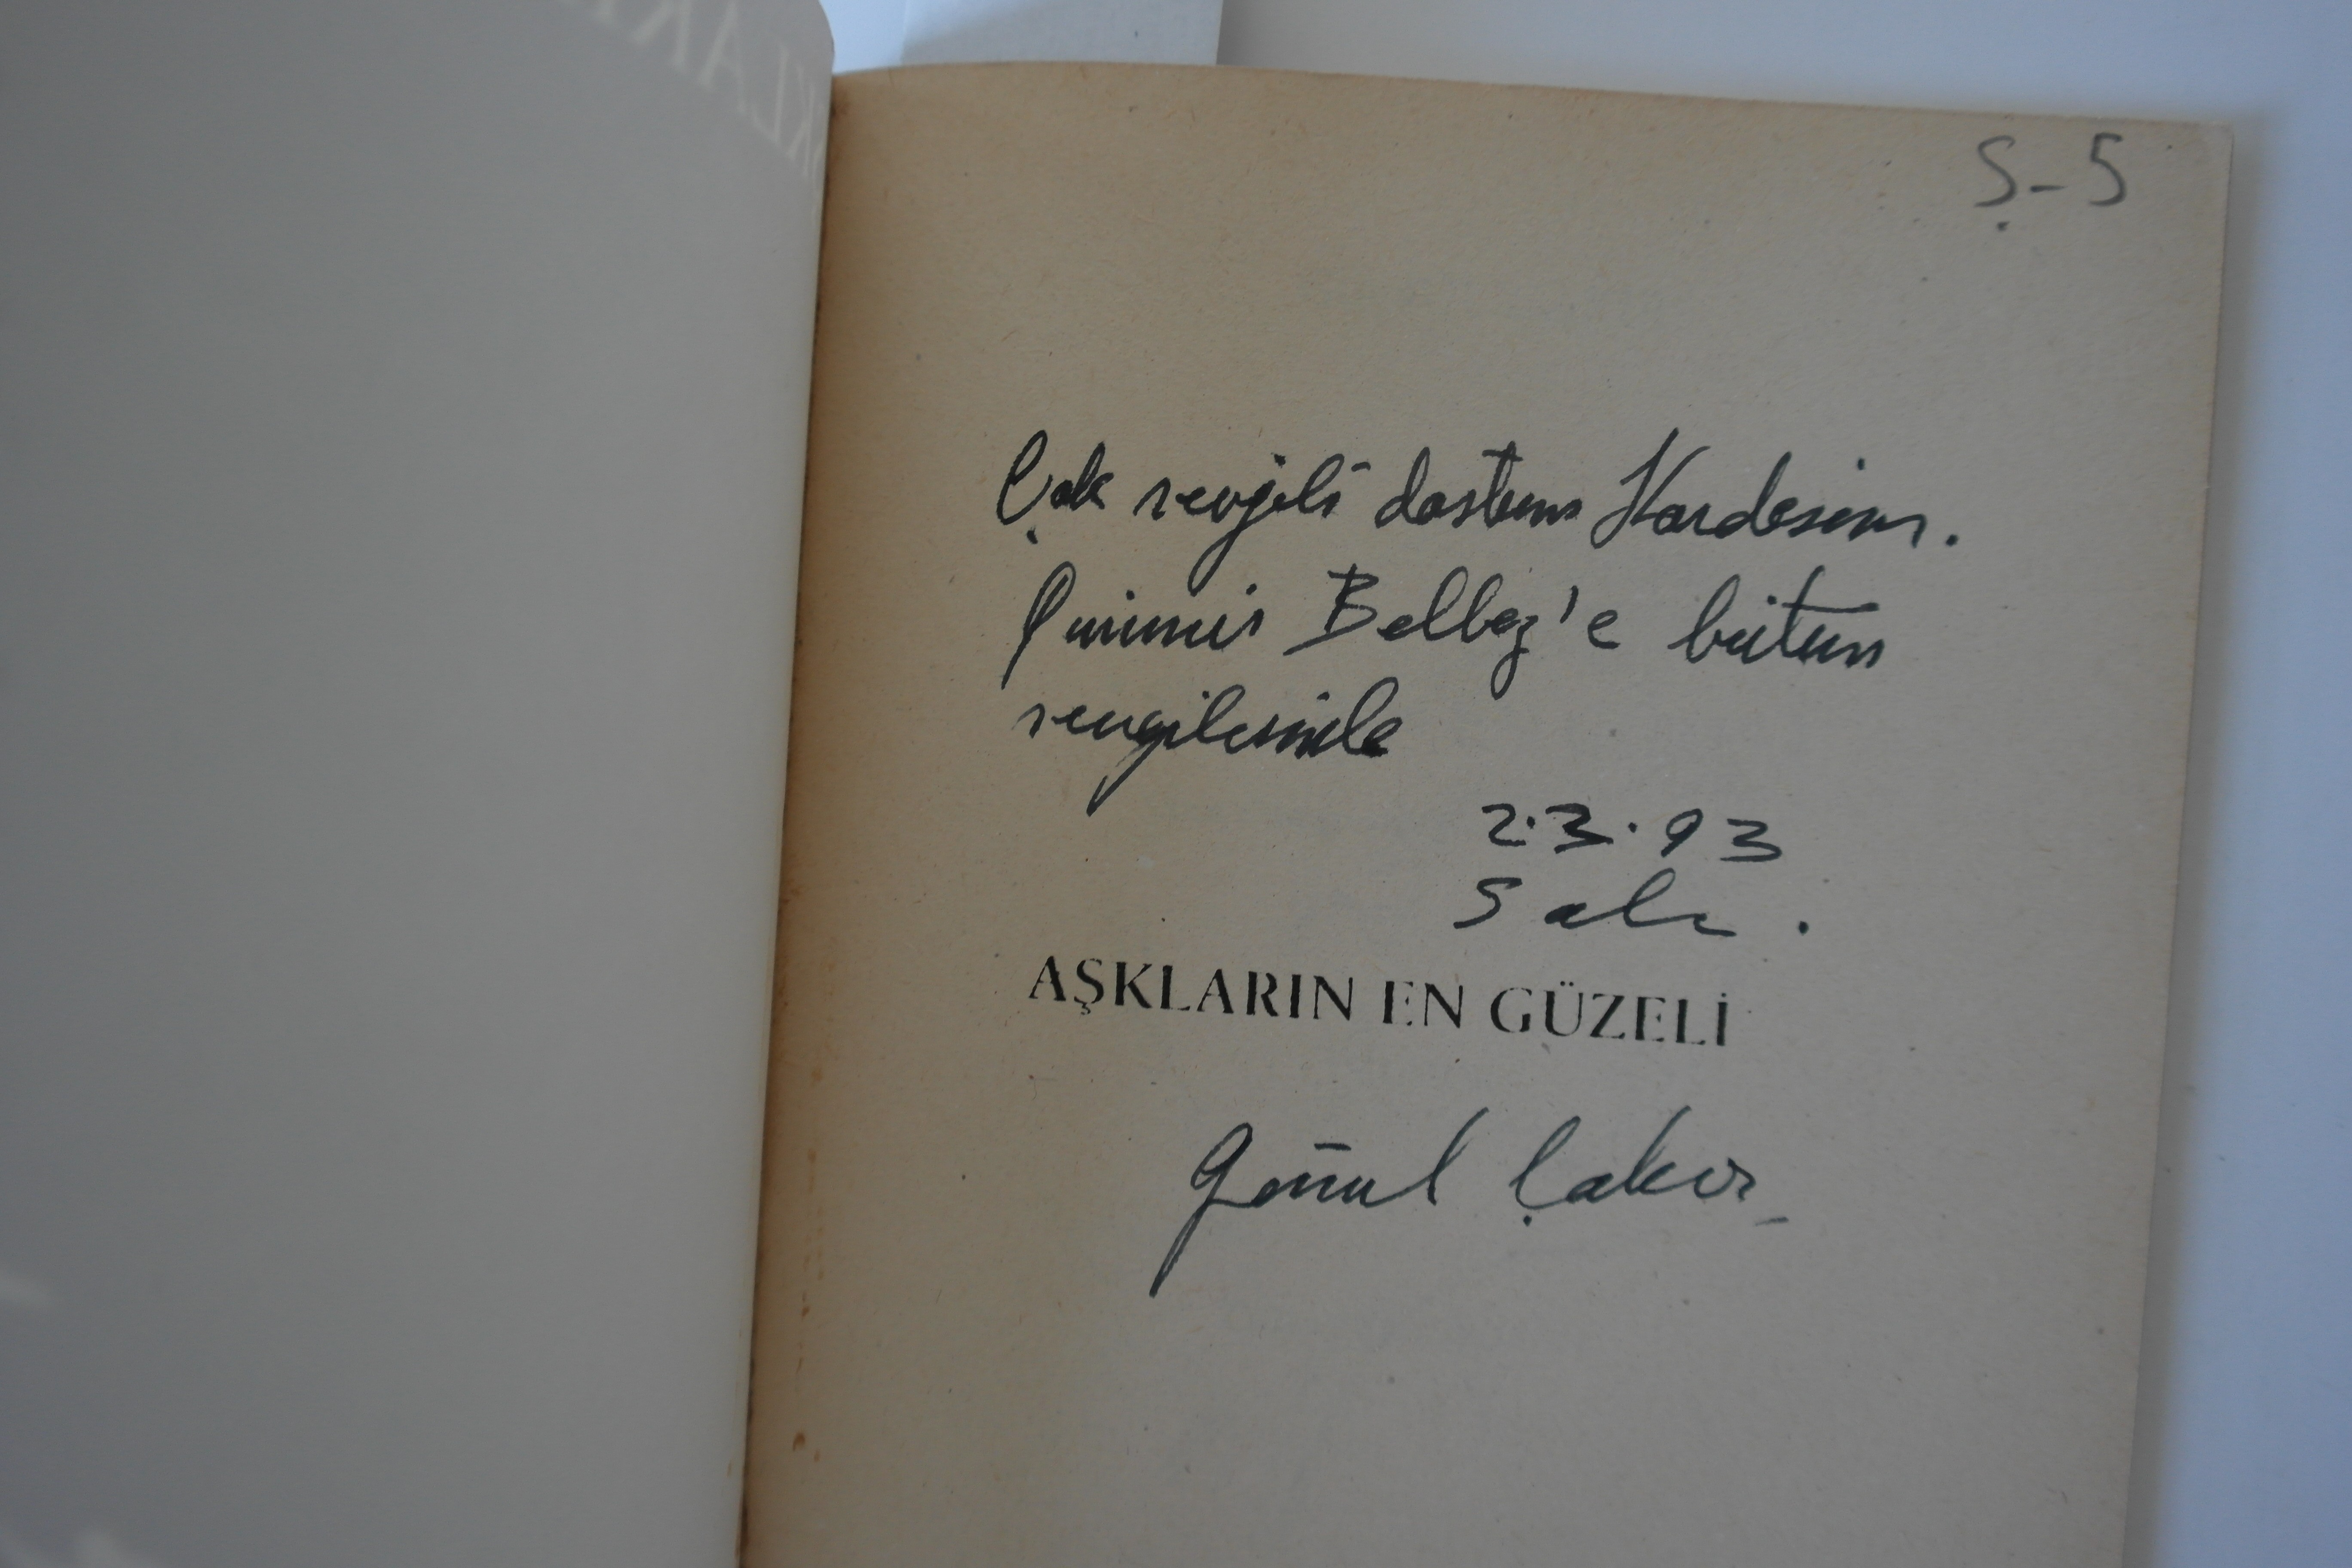 Ş-5
Çok sevgili dostum Kardeşim.
Belbez'e bütün
sevgilerimle
2.3.93
Salı.
AŞKLARIN EN GÜZELİ
Gönül Çakır